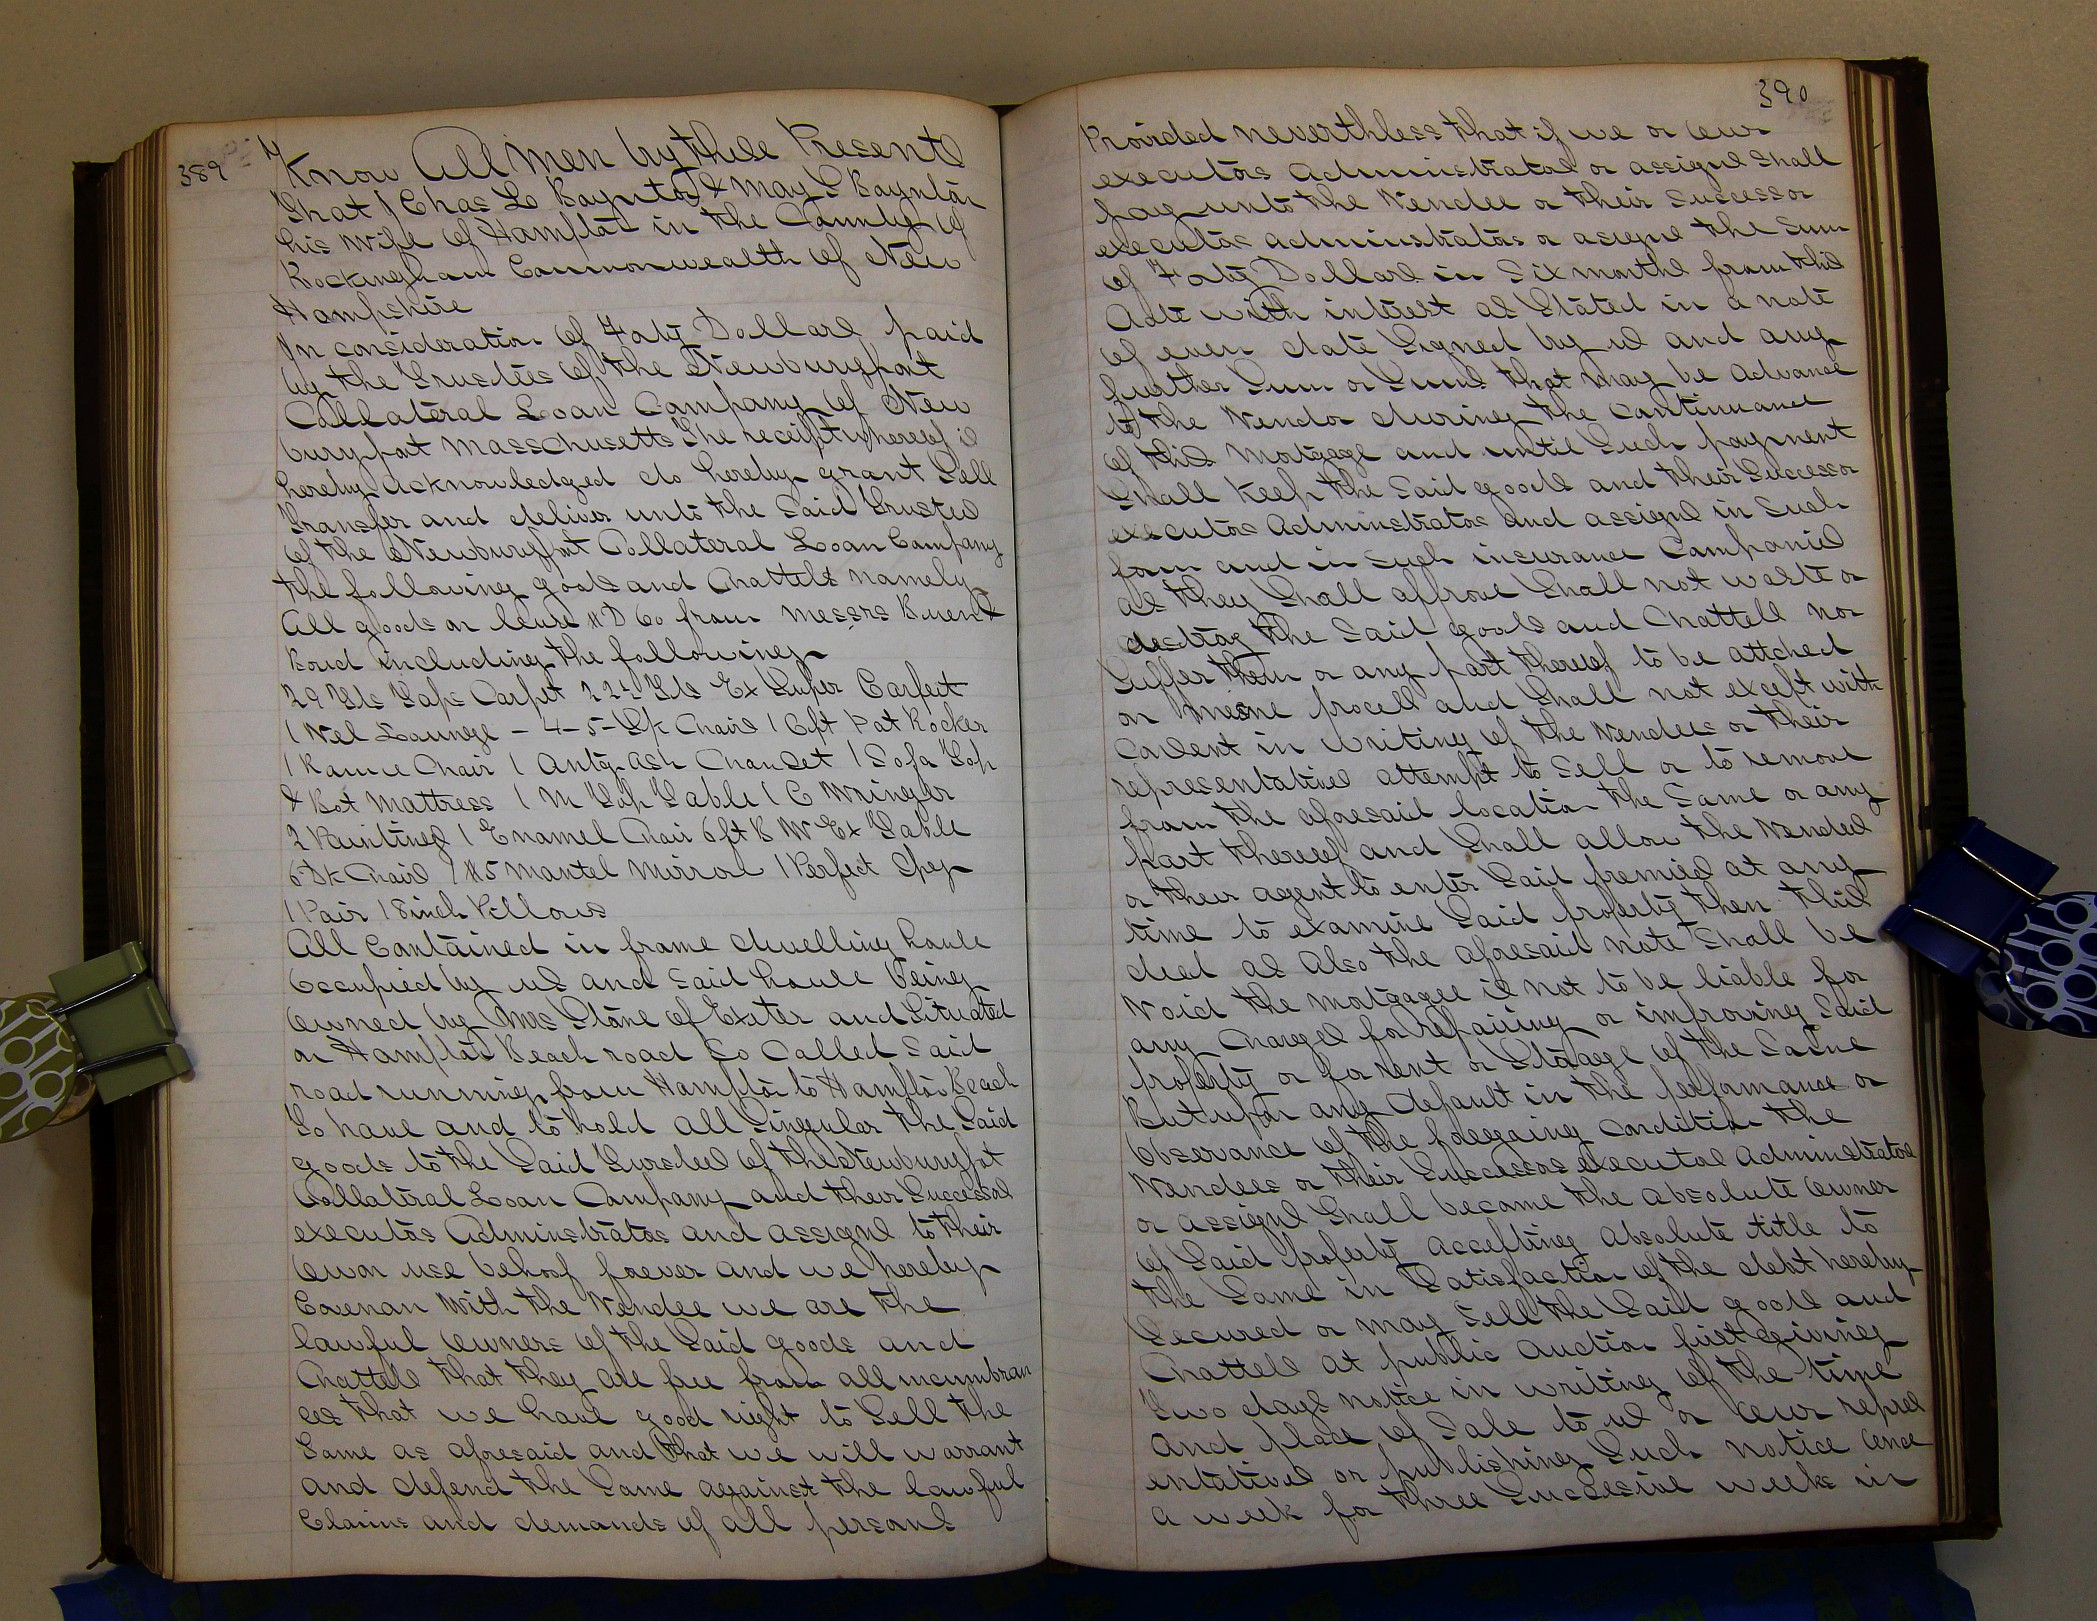 389
Know All Men by these Presents
That I Chas L Baynton & May S Baynton
his wife of Hampton in the County of
Rockingham Commonwealth of New
Hampshire
In consideration of Forty Dollars paid
by the Trustees of the Newburyport
Collateral Loan Company of New
buryport Masschusetts The receipt whereof is
hereby acknowledged do hereby grant Sell
Transfer and deliver unto the Said Trustees
of the Newburyport Collateral Loan Company
the following goods and Chattels namely
All goods on lease # D 60 from Messrs
Boud including the following
29 Yds Taps Carpet 22½ Yds Ex Super Carpet
1 Vel Lounge - 4-5- Chairs 1 Cft Pat Rocker
1 Chair 1 Antq Ash Chamset 1 Sofa Top
& Bot Mattress 1 M Top Table 1 C Wringer
2 Paintings 1 Enamel Chair 6 ft B W Ex Table
6 Dk Chairs 1 #5 Mantel Mirror 1 Perfect Spg
1 Pair 18 inch Pillows
All Contained in frame dwelling house
Occupied by us and said house being
Owned by Mrs Stone of Exeter and Situated
on Hampton Beach road So Called Said
road running from Hampton to Hampton Beach
To have and to hold all Singular the Said
goods to the Said Trustees of the Newburyport
Collatiral Loan Company and their Successors
executors Administrators and assigns to their
own use behoof forever and we hereby
Covenan With the Vendee we are the
lawful Owners of the Said goods and
Chattels that they are free from all incumbran
ces that we have good right to Sell the
Same as aforesaid and that we will warrant
and defend the Same against the lawful
Claims and demands of all persons
390
Provided nevertheless that if we or our
executors Administrators or assigns shall
pay unto the Vendee or their Successor
executors administrators or assigns the Sum
of Forty Dollars in Six months from this
date with interest as Stated in a note
of even date Signed by us and any
further Sum or Sums that may be Advance
to the Vendor during the Continuance
of this Mortgage and until Such payment
Shall Keep the Said goods and their Successor
executors Administrators and assigns in Such
form and in Such insurance Companies
as they Shall approve Shall not waste or
destroy the Said goods and Chattels nor
Suffer them or any part thereof to be attched
on mesne process and Shall not except with
Consent in Writing of the Vendees or their
representatives attempt to Sell or to remove
from the aforesaid location the Same or any
part thereof and Shall allow the Vendees
or their agent to enter Said premises at any
time to examine Said property then this
deed as Also the aforesaid note Shall be
Void the Mortgagee is not to be liable for
any Charges for repairing or improving Said
property or for rent or Storage of the Same
But upon any default in the performance or
Observance of the foregoing Condition the
Vendees or their Successors executors Administrators
or assigns Shall become the absolute Owner
of Said property accepting absolute title to
the Same in Satisfaction of the debt hereby
Secured or may Sell the Said goods and
Chattels at public Auction first giving
Two days notice in writing of the time
and place of Sale to us or our repres
entatives or publishing Such notice once
a week for three Successive weeks in